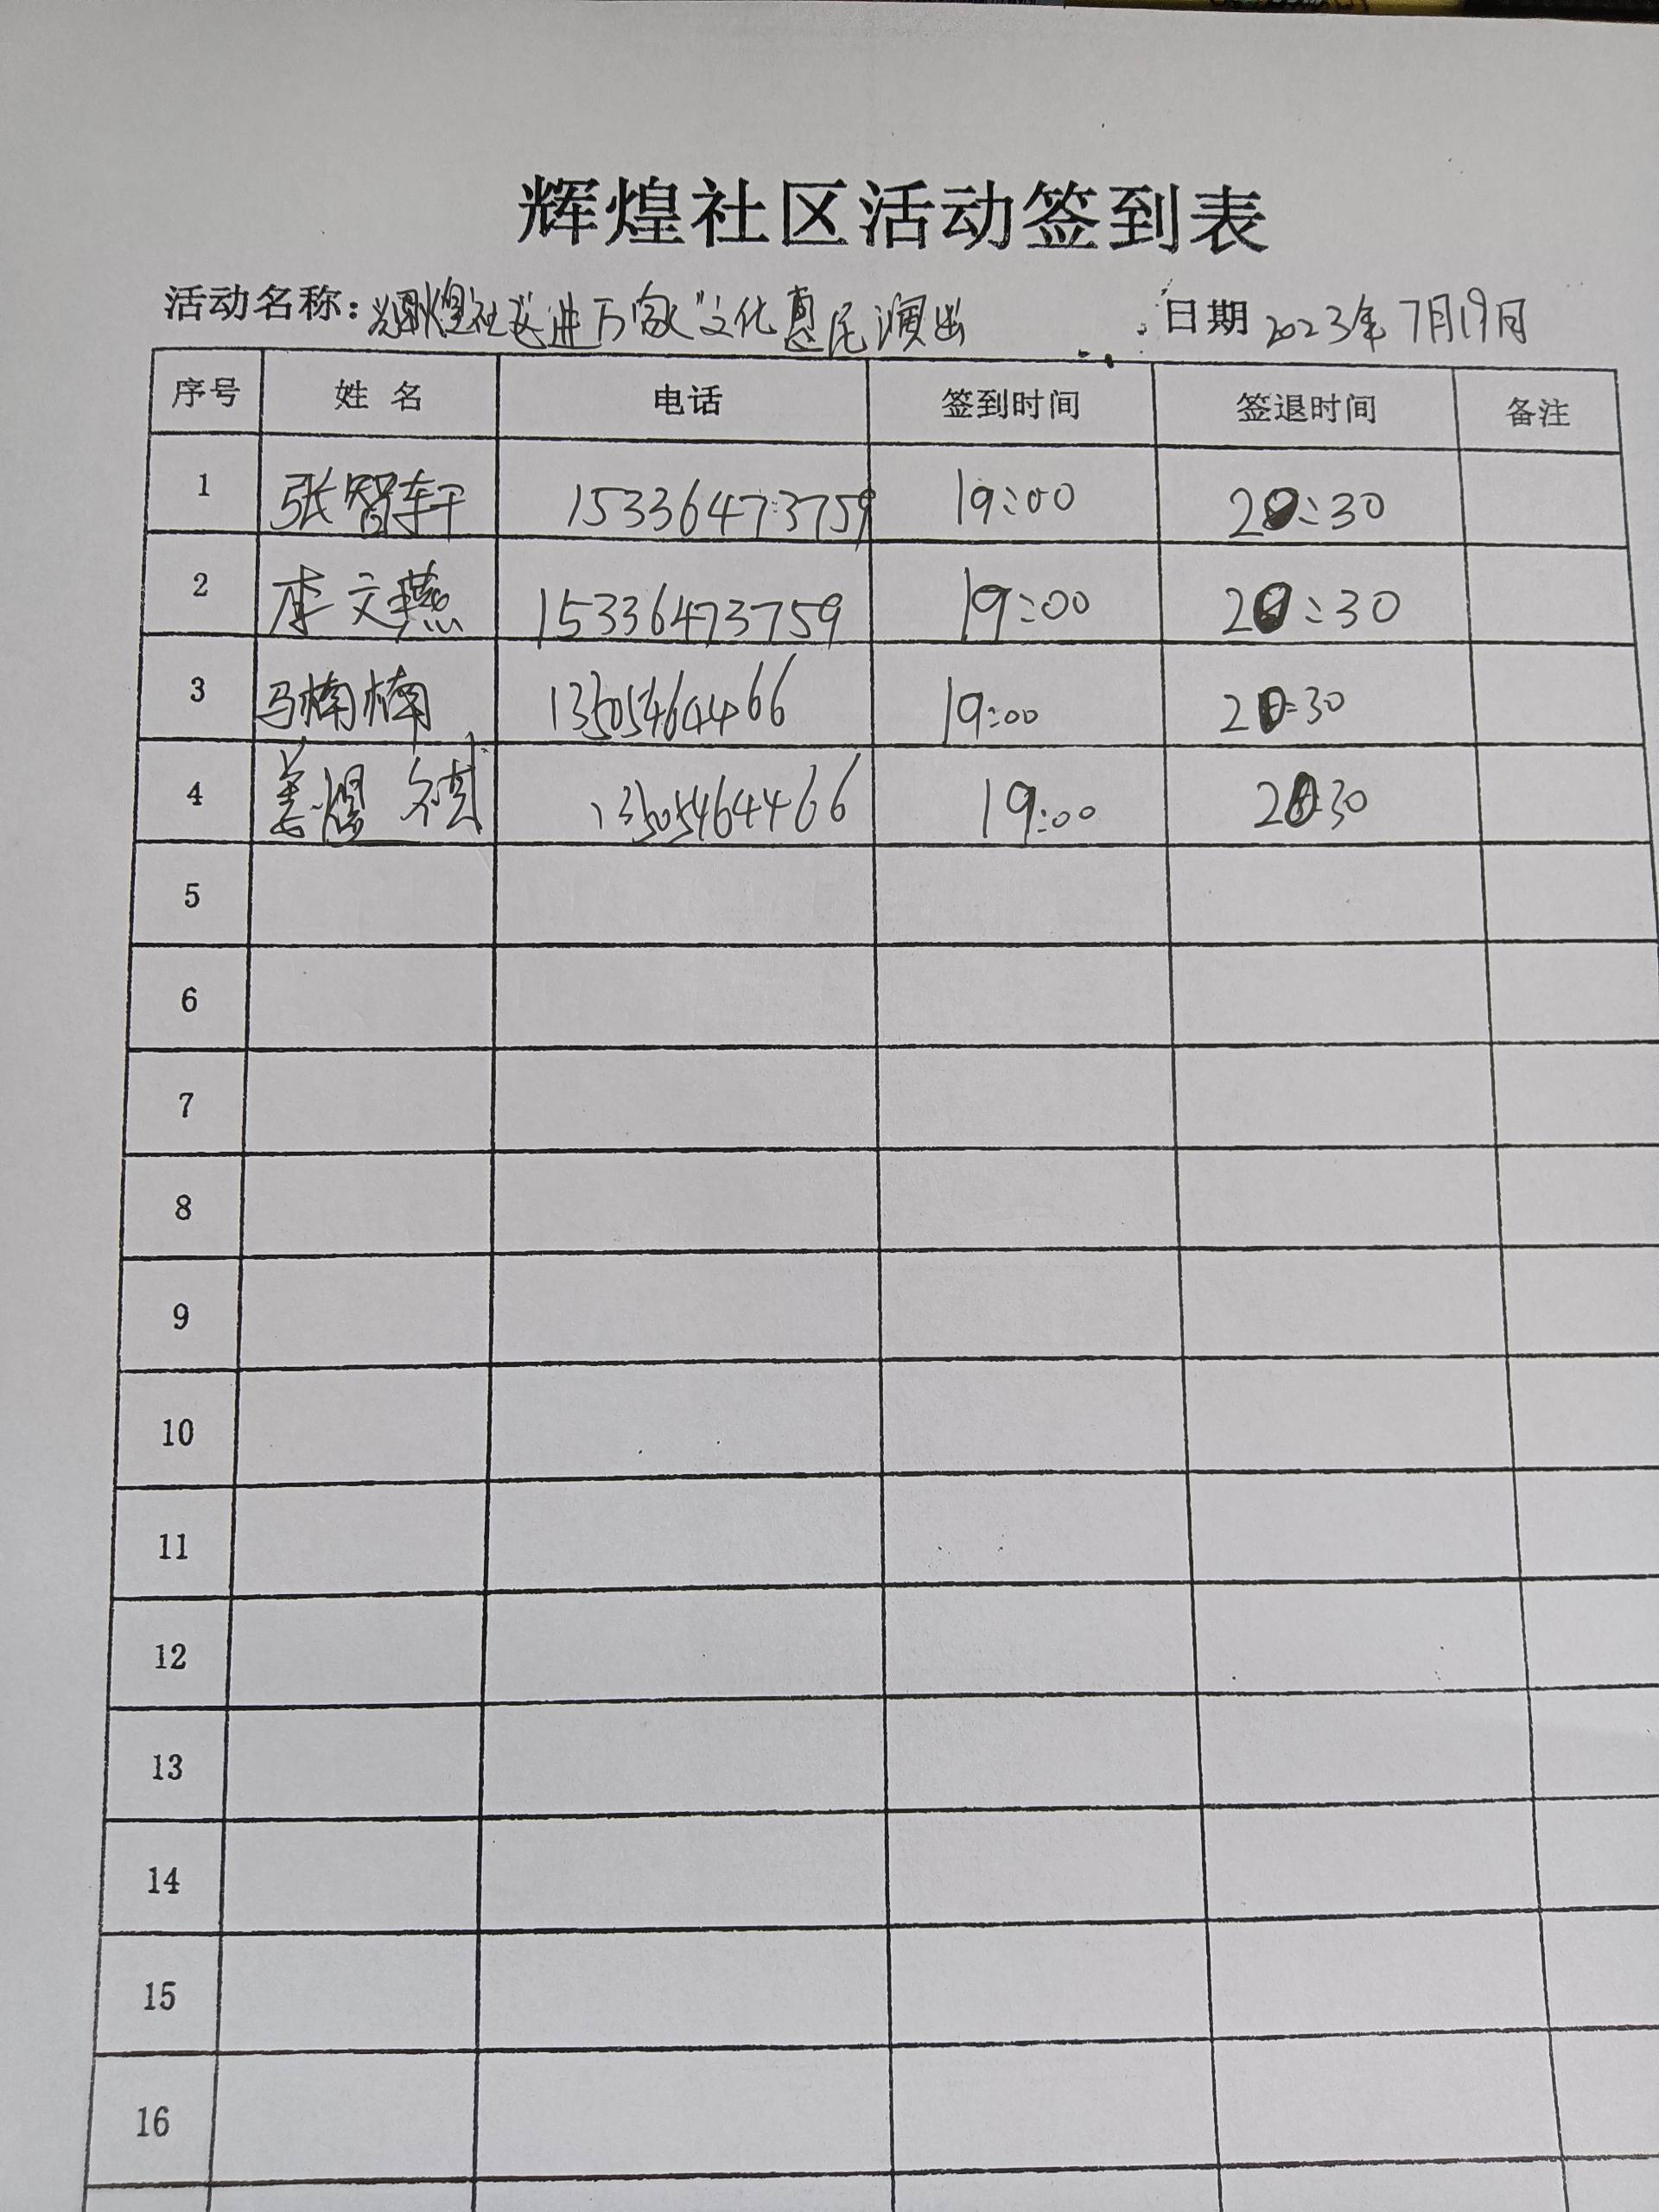 辉煌社区活动签到表
活动名称：辉煌社区"进万家"文化惠民演出 日期 2023年7月19日
序号 姓名 电话 签到时间 签退时间 备注
1 张智轩 15336473759 19:00 20:30
2 李文燕 15336473759 19:00 20:30
3 马楠楠 13505464466 19:00 20:30
4 姜煜祺 13505464466 19:00 20:30
5
6
7
8
9
10
11
12
13
14
15
16